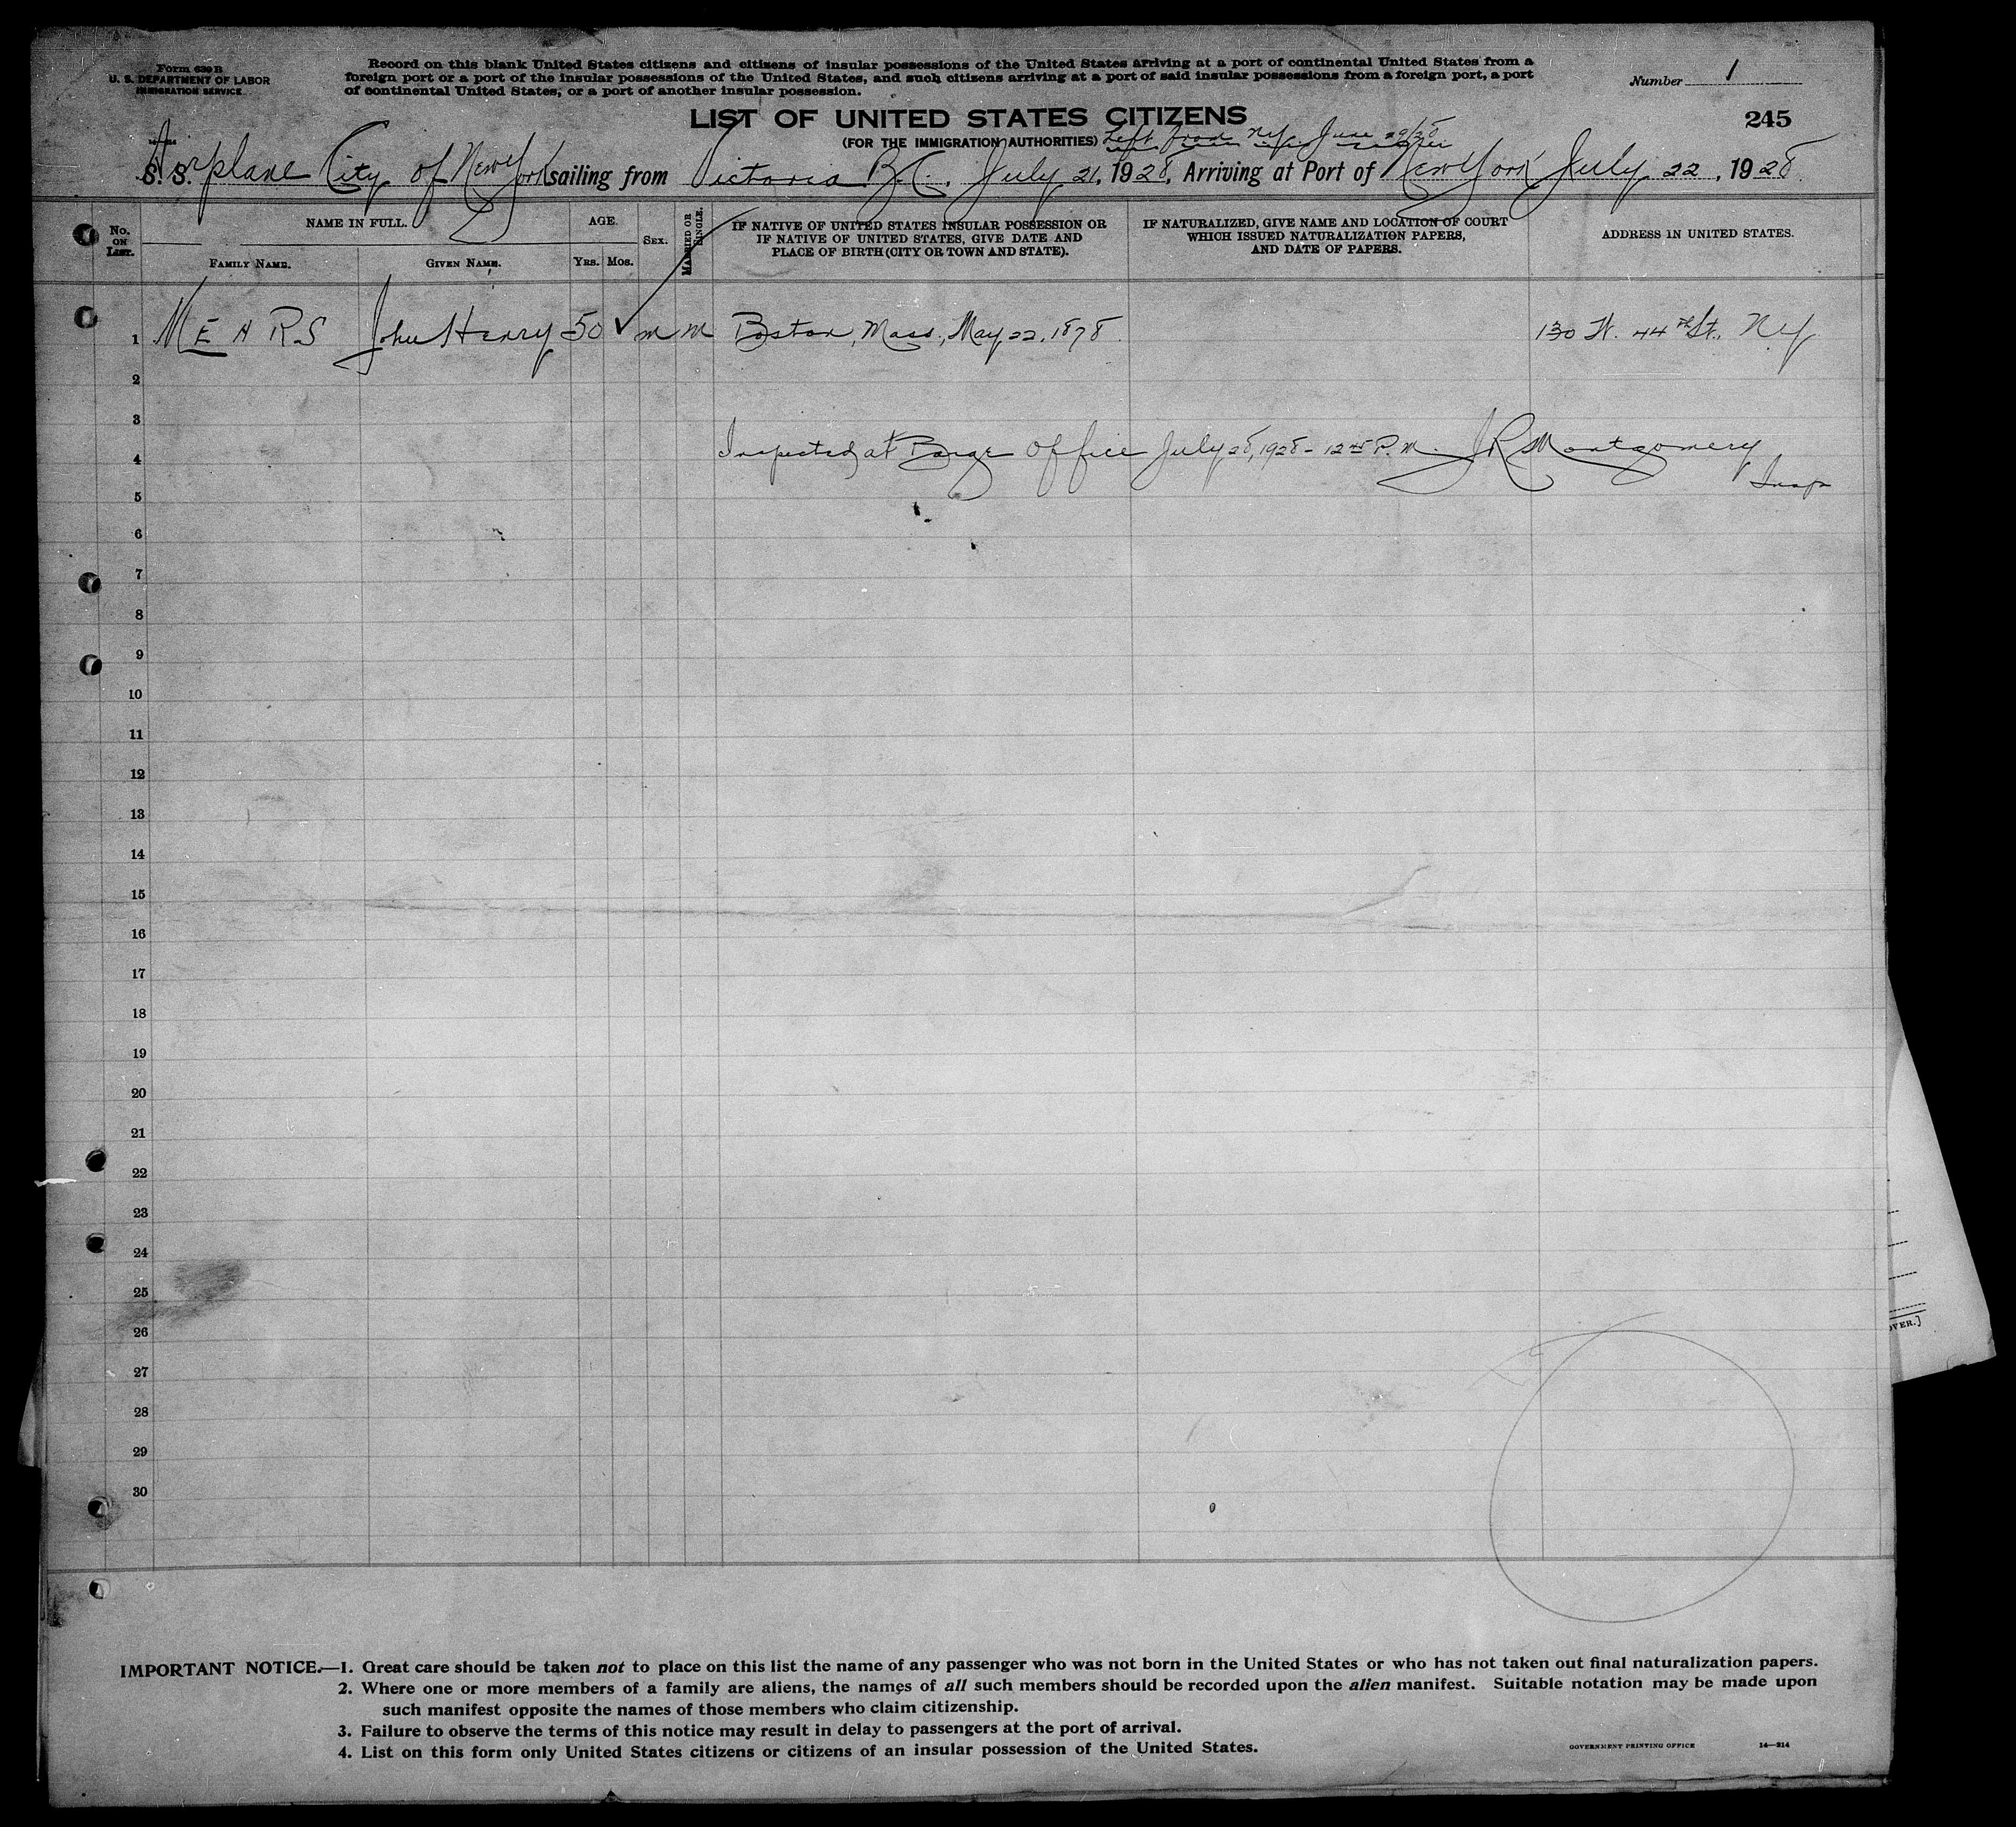 Form 630 B
U. S. DEPARTMENT OF LABOR
IMMIGRATION SERVICE
Record on this blank United States citizens and citizens of insular possessions of the United States arriving at a port of continental United States from a
foreign port or a port of the insular possessions of the United States, and such citizens arriving at a port of said insular possessions from a foreign port, a port
of continental United States, or a port of another insular possession.
Number 1
LIST OF UNITED STATES CITIZENS
245
(FOR THE IMMIGRATION AUTHORITIES) Left from N.Y. June 29/28
S. S. Airplane City of New York sailing from Victoria B.C., July 21, 1928, Arriving at Port of New York July 22, 1928.
No. ON LIST.
NAME IN FULL.
FAMILY NAME.
GIVEN NAME.
AGE.
YRS. MOS.
SEX.
MARRIED OR SINGLE.
IF NATIVE OF UNITED STATES INSULAR POSSESSION OR
IF NATIVE OF UNITED STATES, GIVE DATE AND
PLACE OF BIRTH (CITY OR TOWN AND STATE).
IF NATURALIZED, GIVE NAME AND LOCATION OF COURT
WHICH ISSUED NATURALIZATION PAPERS,
AND DATE OF PAPERS.
ADDRESS IN UNITED STATES.
1 MEARS John Henry 50 m m Boston, Mass., May 22, 1878. 130 W. 44th St., N.Y.
2
3
4 Inspected at Barge Office July 28, 1928 - 12 45 P.M. J R Montgomery
Insp
5
6
7
8
9
10
11
12
13
14
15
16
17
18
19
20
21
22
23
24
25
26
27
28
29
30
OVER.]
IMPORTANT NOTICE.—1. Great care should be taken not to place on this list the name of any passenger who was not born in the United States or who has not taken out final naturalization papers.
2. Where one or more members of a family are aliens, the names of all such members should be recorded upon the alien manifest. Suitable notation may be made upon
such manifest opposite the names of those members who claim citizenship.
3. Failure to observe the terms of this notice may result in delay to passengers at the port of arrival.
4. List on this form only United States citizens or citizens of an insular possession of the United States.
GOVERNMENT PRINTING OFFICE 14—314